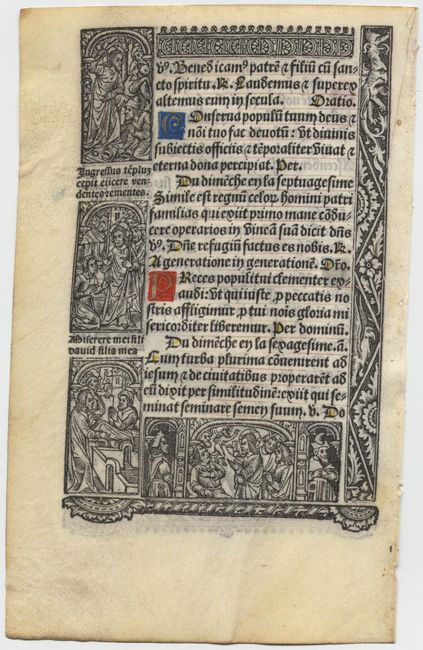 v̄. Benedicam⁹ patrē ⁊ filiū cū san-
cto spiritu. R̄. Laudemus ⁊ superex
altemus eum in secula. Oratio.
Cōserua populū tuum deus ⁊
nōi tuo fac deuotū: Vt diuinis
subiectis officiis ⁊ tēporaliter viuat ⁊
eterna dona percipiat. Per.
Du dimēche en la septuagesime
Simile est regnū celoꝝ homini patri
familias qui exiit primo mane cōdu-
cere operarios in vineā suā dicit dn̄s
v̄. Dn̄e refugiū factus es nobis. R̄.
A generatione in generationē. Or̄o.
PReces populi tui clementer ex
audi: vt qui iuste ꝓ peccatis no
stris affligimur ꝓ tui nōis gloria mi
sericorditer liberemur. Per dominū.
Du dimēche en la sexagesime. ā.
Cum turba plurima cōuenirent ad
iesum ⁊ de ciuitatibus properarēt ad
eū dixit per similitudinē: exiit qui se-
minat seminare semen suum. v̄. Do
Ingressus tēplū
cepit eiicere ven-
dentes ⁊ ementes.
Miserere mei fili
dauid filia mea